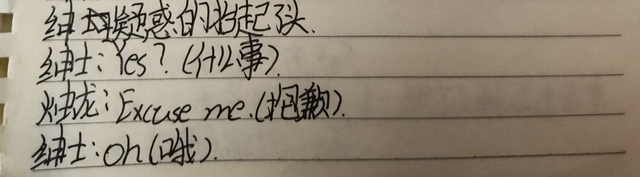 绅士疑惑的抬起了头.
绅士:Yes?(什么事).
烛龙:Excuse me.(抱歉).
绅士:oh(哦).